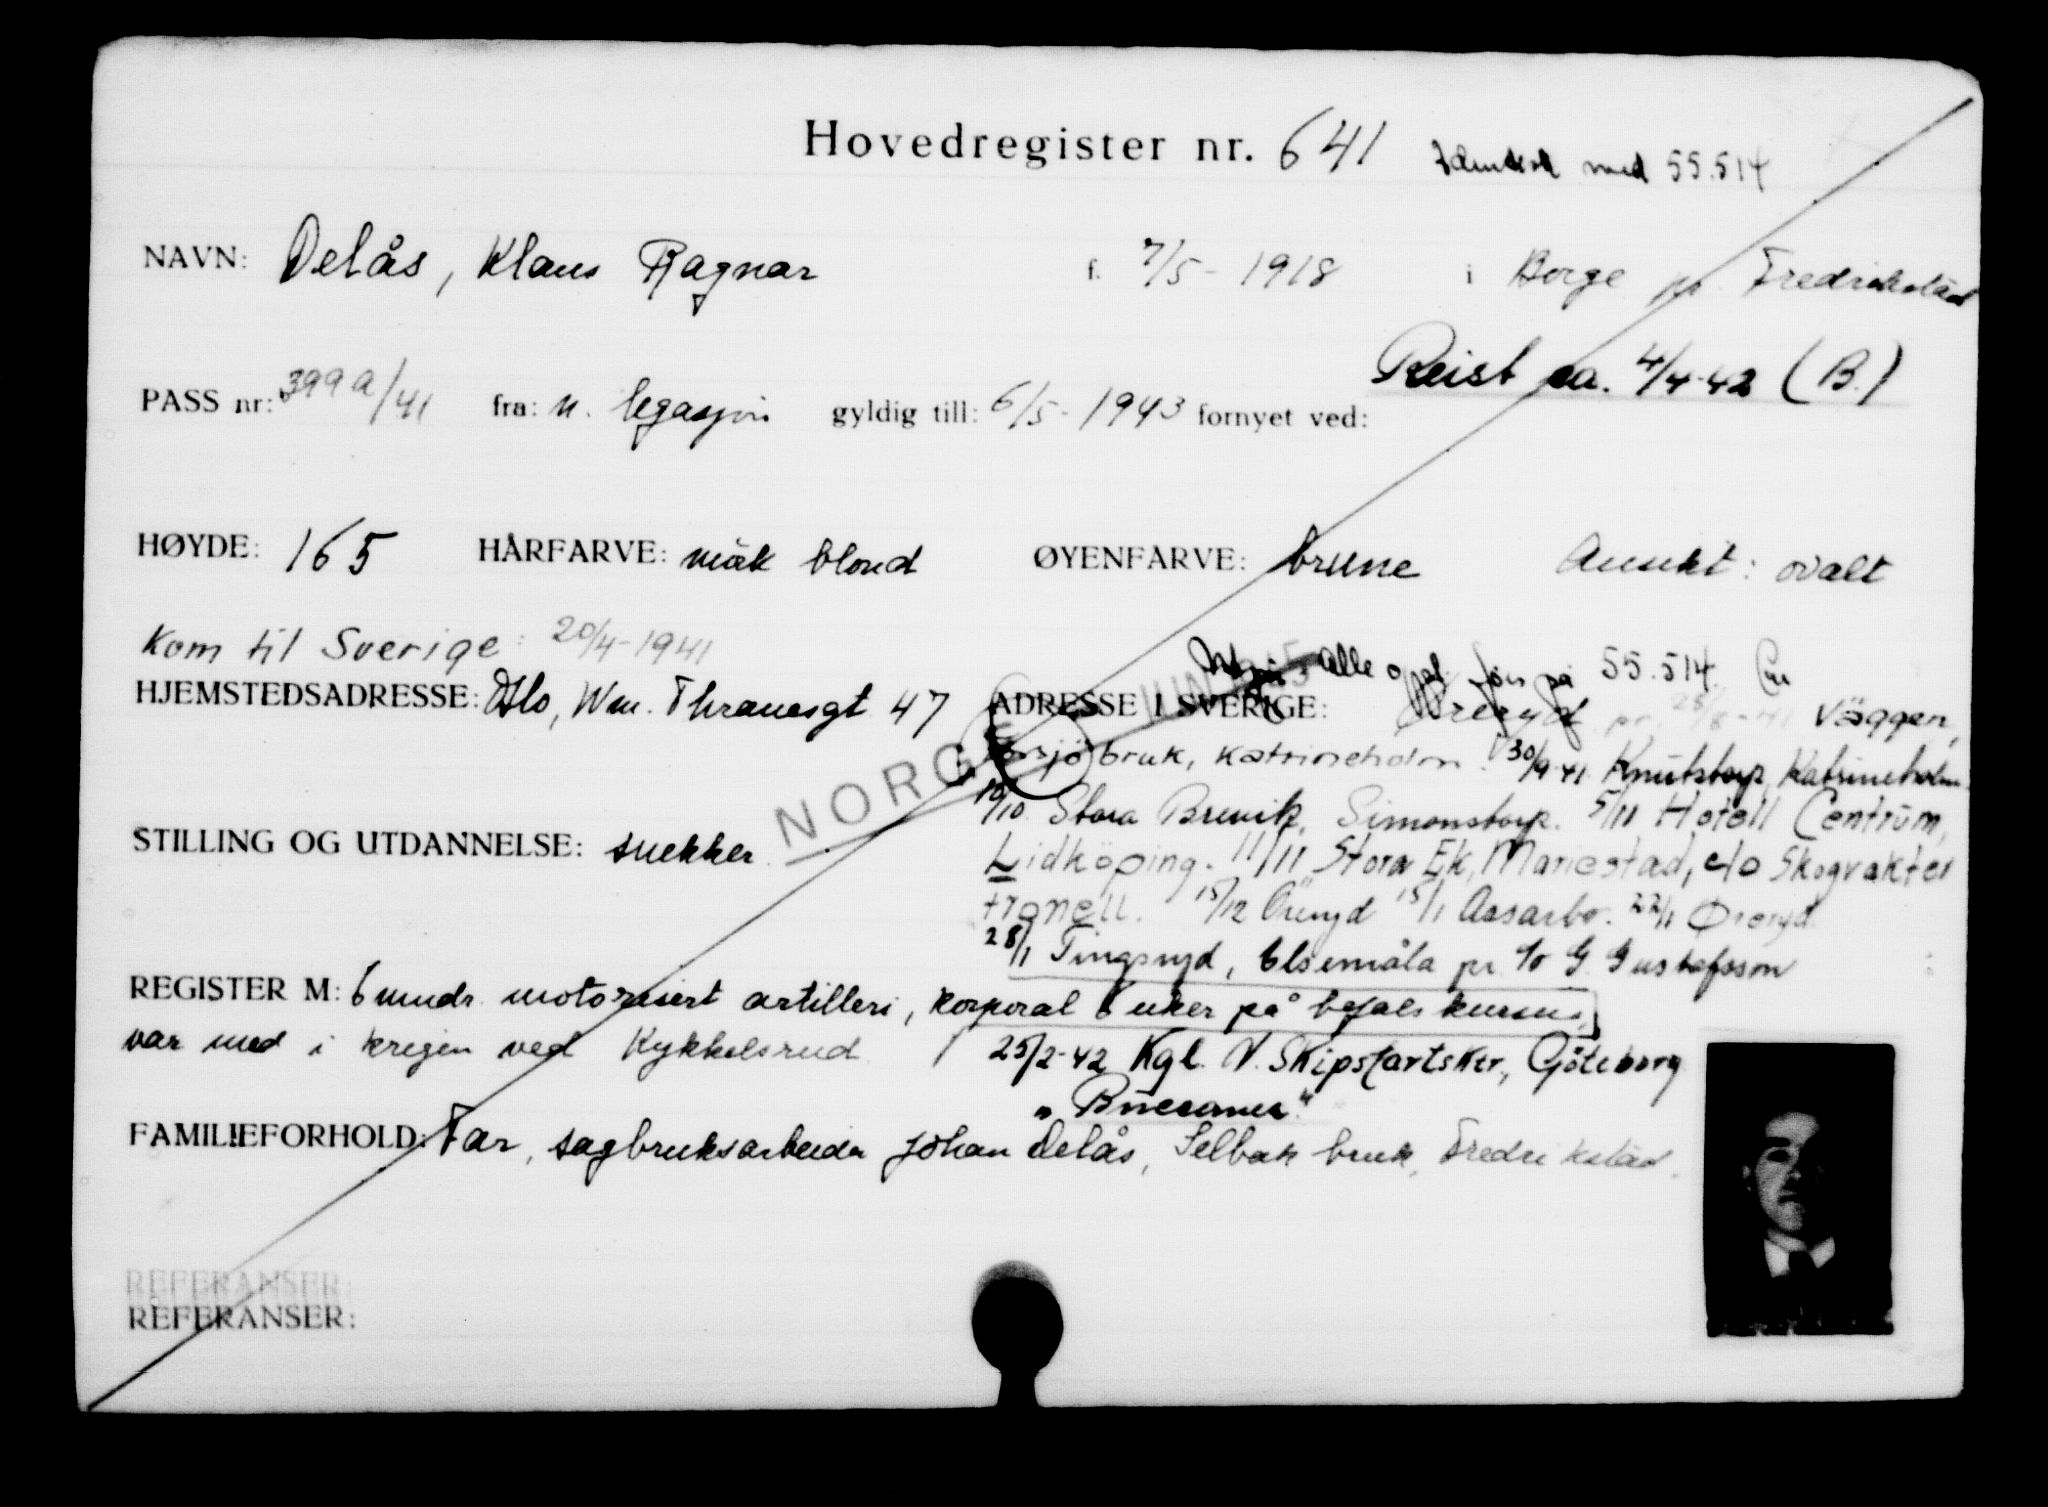 Hovedregister nr. 641 Identisk med 55.514
NAVN: Delås, Klaus Ragnar f. 7/5-1918 i Borge pr Fredrikstad
Reist ca. 4/4-42 (B.)
PASS nr: 399a/41 fra: n. legasjon gyldig till: 6/5-1943 fornyet ved:
HØYDE: 165 HÅRFARVE: mørk blond ØYENFARVE: brune Ansikt: ovalt
Kom til Sverige: 20/4-1941
alle oppl. på 55.514
HJEMSTEDSADRESSE: Oslo, Wm. Thranesgt 47 ADRESSE I SVERIGE: Øreryd pr. 28/8-41 Väggen,
bruk, Katrineholm. 30/9-41 Knutstorp, Katrineholm.
NORGE
10/10 Stora Brevik, Simonstorp. 5/11 Hotell Centrum,
STILLING OG UTDANNELSE: snekker
Lidköping. 11/11 Stora Ek, Mariestad, c/o Skogvakter
Franell. 15/12 Öreryd 15/1 Aasarbo. 22/1 Øreryd
28/1 Tingsryd, Elsemåla pr c/o G. Gustafsson
REGISTER M: 6 mndr. motorisert artilleri, korporal 6 uker på befalskursus,
var med i krigen ved Kykkelsrud
25/2-42 Kgl. N. Skipsfartsktr., Göteborg
"Buccaneer"
FAMILIEFORHOLD: Far, sagbruksarbeider Johan Delås, Selbak bruk, Fredrikstad.
REFERANSER:
REFERANSER: